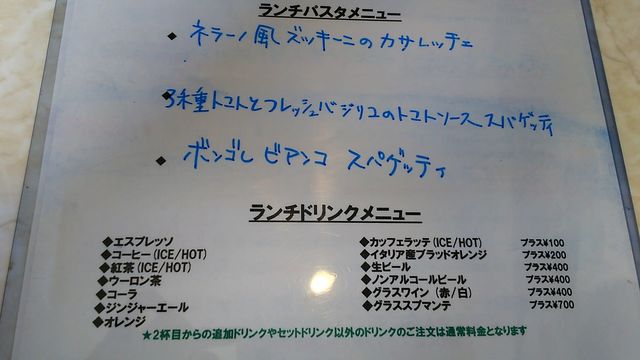 ランチパスタメニュー
◆ ネラーノ風ズッキーニのカサレッチェ
◆ 3種トマトとフレッシュバジリコのトマトソース スパゲッティ
◆ ボンゴレ ビアンコ スパゲッティ
ランチドリンクメニュー
◆エスプレッソ
◆コーヒー(ICE/HOT)
◆紅茶(ICE/HOT)
◆ウーロン茶
◆コーラ
◆ジンジャーエール
◆オレンジ
◆カッフェラッテ(ICE/HOT) プラス¥100
◆イタリア産ブラッドオレンジ プラス¥200
◆生ビール プラス¥400
◆ノンアルコールビール プラス¥400
◆グラスワイン(赤/白) プラス¥400
◆グラススプマンテ プラス¥700
★2杯目からの追加ドリンクやセットドリンク以外のドリンクのご注文は通常料金となります